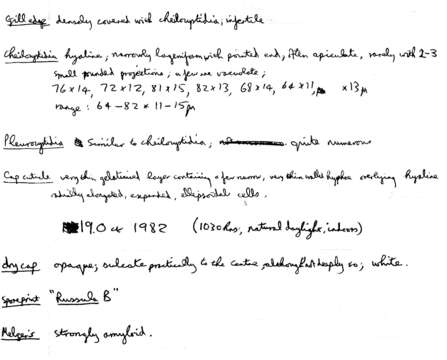 Gill edge densely covered with cheilocystidia; infertile
Cheilocystidia hyaline, narrowly lageniform with pointed end, often apiculate, rarely with 2-3
small rounded projections; a few are vacuolate;
76×14, 72×12, 81×15, 82×13, 68×14, 64×11, ×13µ
range: 64-82 × 11-15µ
Pleurocystidia Similar to cheilocystidia; quite numerous
Cap cuticle very thin gelatinised layer containing a few narrow, very thin walled hyphae overlying hyaline
elongated, expanded, ellipsoidal cells.
19.0 1982 (1030 hrs, natural daylight, indoors)
dry cap opaque; sulcate practically to the centre, although not deeply so; white.
Spore print "Russula B"
Melzer's strongly amyloid.